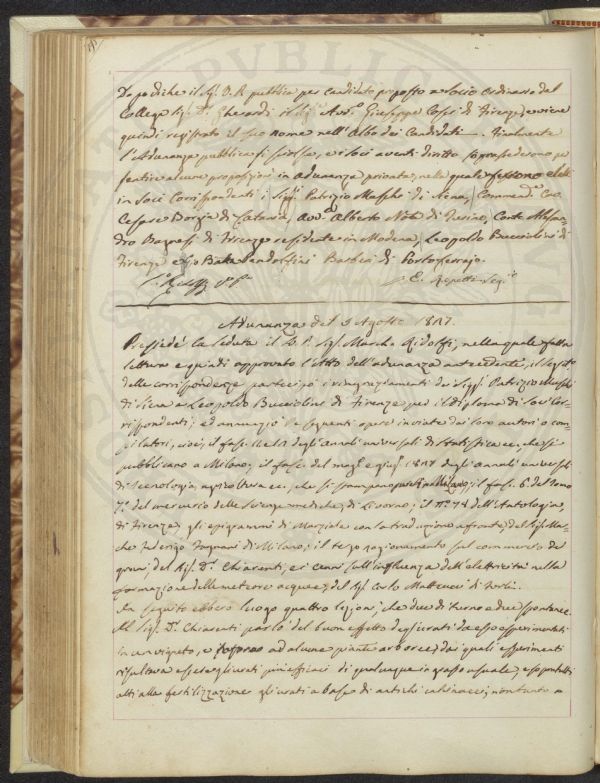 Dopodiché il Sig. V. P. pubblica per candidato proposto a Socio Ordinario dal
Collega Sig. D. Gherardi il Sig. Avv. Giuseppe di Firenze, e viene
quindi registrato il suo nome nell'Albo dei Candidati. Finalmente
l'Adunanza pubblica si sciolse, e i soci aventi diritto per
sentire alcune proposizioni in adunanza privata, nella quale fessono eletti
in Soci Corrispondenti i Sigg. Patrizio di Siena, Commend. Cav.
Cesare Borgia di Catania, Avv. Alberto Nota di Torino, Conte
Bagnesi di Firenze residente in Modena, Leopoldo Bucciolini di
Firenze e Pandolfini Barberi di Portoferrajo.
E. Repetti Seg.
Adunanza del 5 Agosto 1827.
Presiedé la seduta il V. P. Sig. March. Ridolfi, nella quale fatta
lettura e quindi approvato l'Atto dell'adunanza antecedente, il Segret.
delle corrispondenze partecipò i ringraziamenti dei Sigg. Patrizio
di Siena e Leopoldo Bucciolini di Firenze, per il diploma di Soci Cor-
rispondenti; ed annunziò le seguenti opere inviate dai loro autori o com-
pilatori, cioè, il fasc. degli annali universali di Statistica ec. che si
pubblicano a Milano; il fasc. del mag. e giug. 1827 degli annali universali
di tecnologia, agricoltura ec., che si stampano pur a Milano; il fasc. 6. del Tomo
7. del mercurio delle Scienze mediche, di Livorno; il N. 78 dell'Antologia,
di Firenze; gli epigrammi di Marziale con la traduzione a fronte, del Sig. Mar-
chese Federigo Fagnani di Milano; il terzo ragionamento sul commercio dei
grani, del Sig. D. Chiarenti, e i cenni sull'influenza dell'elettricità nella
formazione delle meteore acquee, del Sig. Carlo Matteucci di Forlì.
In seguito ebbero luogo quattro lezioni, cioè due di turno e due spontanee.
Il Sig. D. Chiarenti parlò del buon effetto degli urati da esso esperimentati
in un vigneto, e sopra ad alcune piante arboree; dai quali esperimenti
risultava essere gli urati più efficaci di qualunque ingrasso usuale, e soprattutto
atti alla fertilizzazione gli urati a base di antichi calcinacci; non tanto a